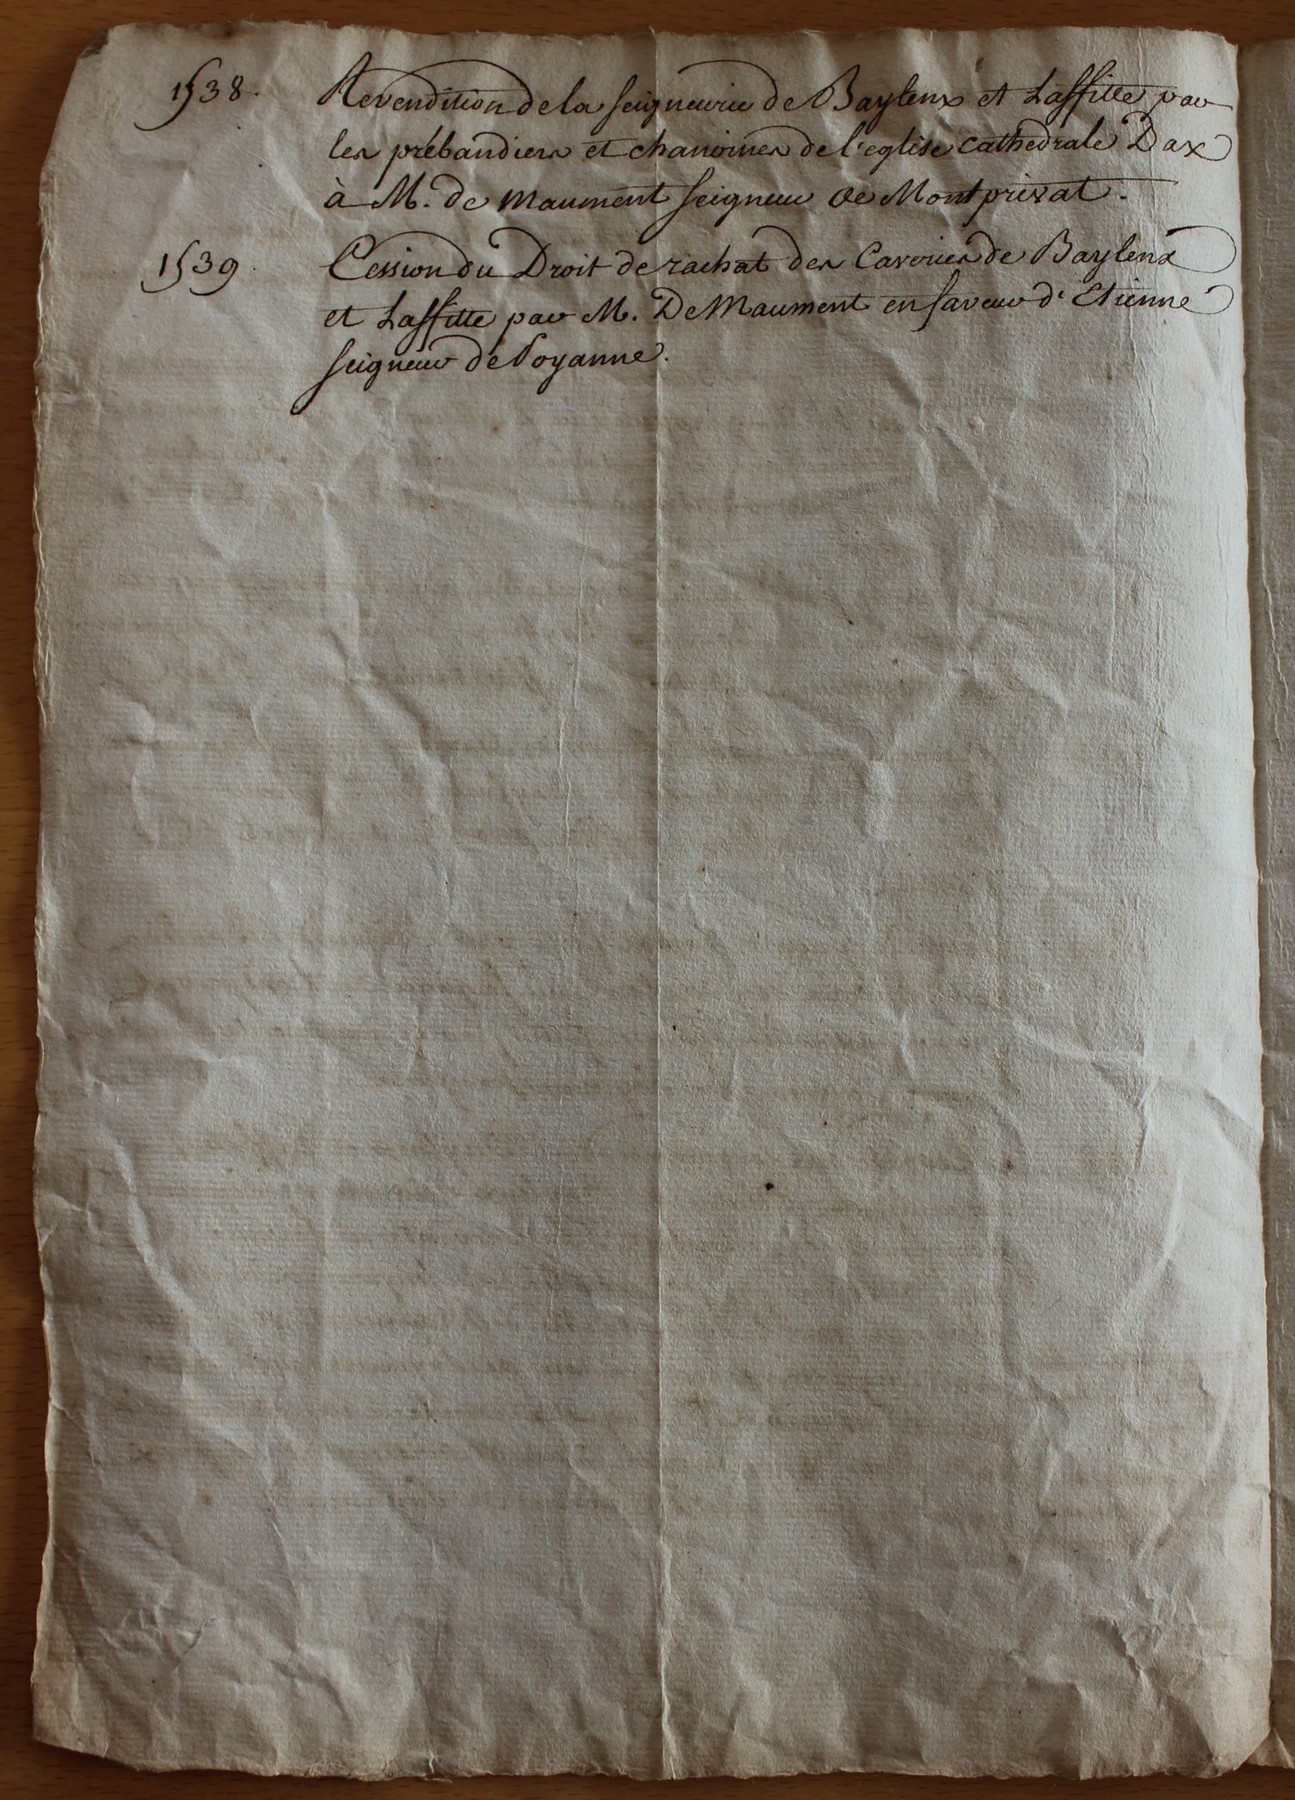 1538. Revendition de la seigneurie de Baylenx et Laffitte par
les prébandiers et chanoines de l'eglise cathedrale Dax
à M. de Maument seigneur de Montprivat.
1539 Cession du Droit de rachat des Caveries de Baylenx
et Laffitte par M. De Maument en faveur d'Etienne
seigneur de Poyanne.